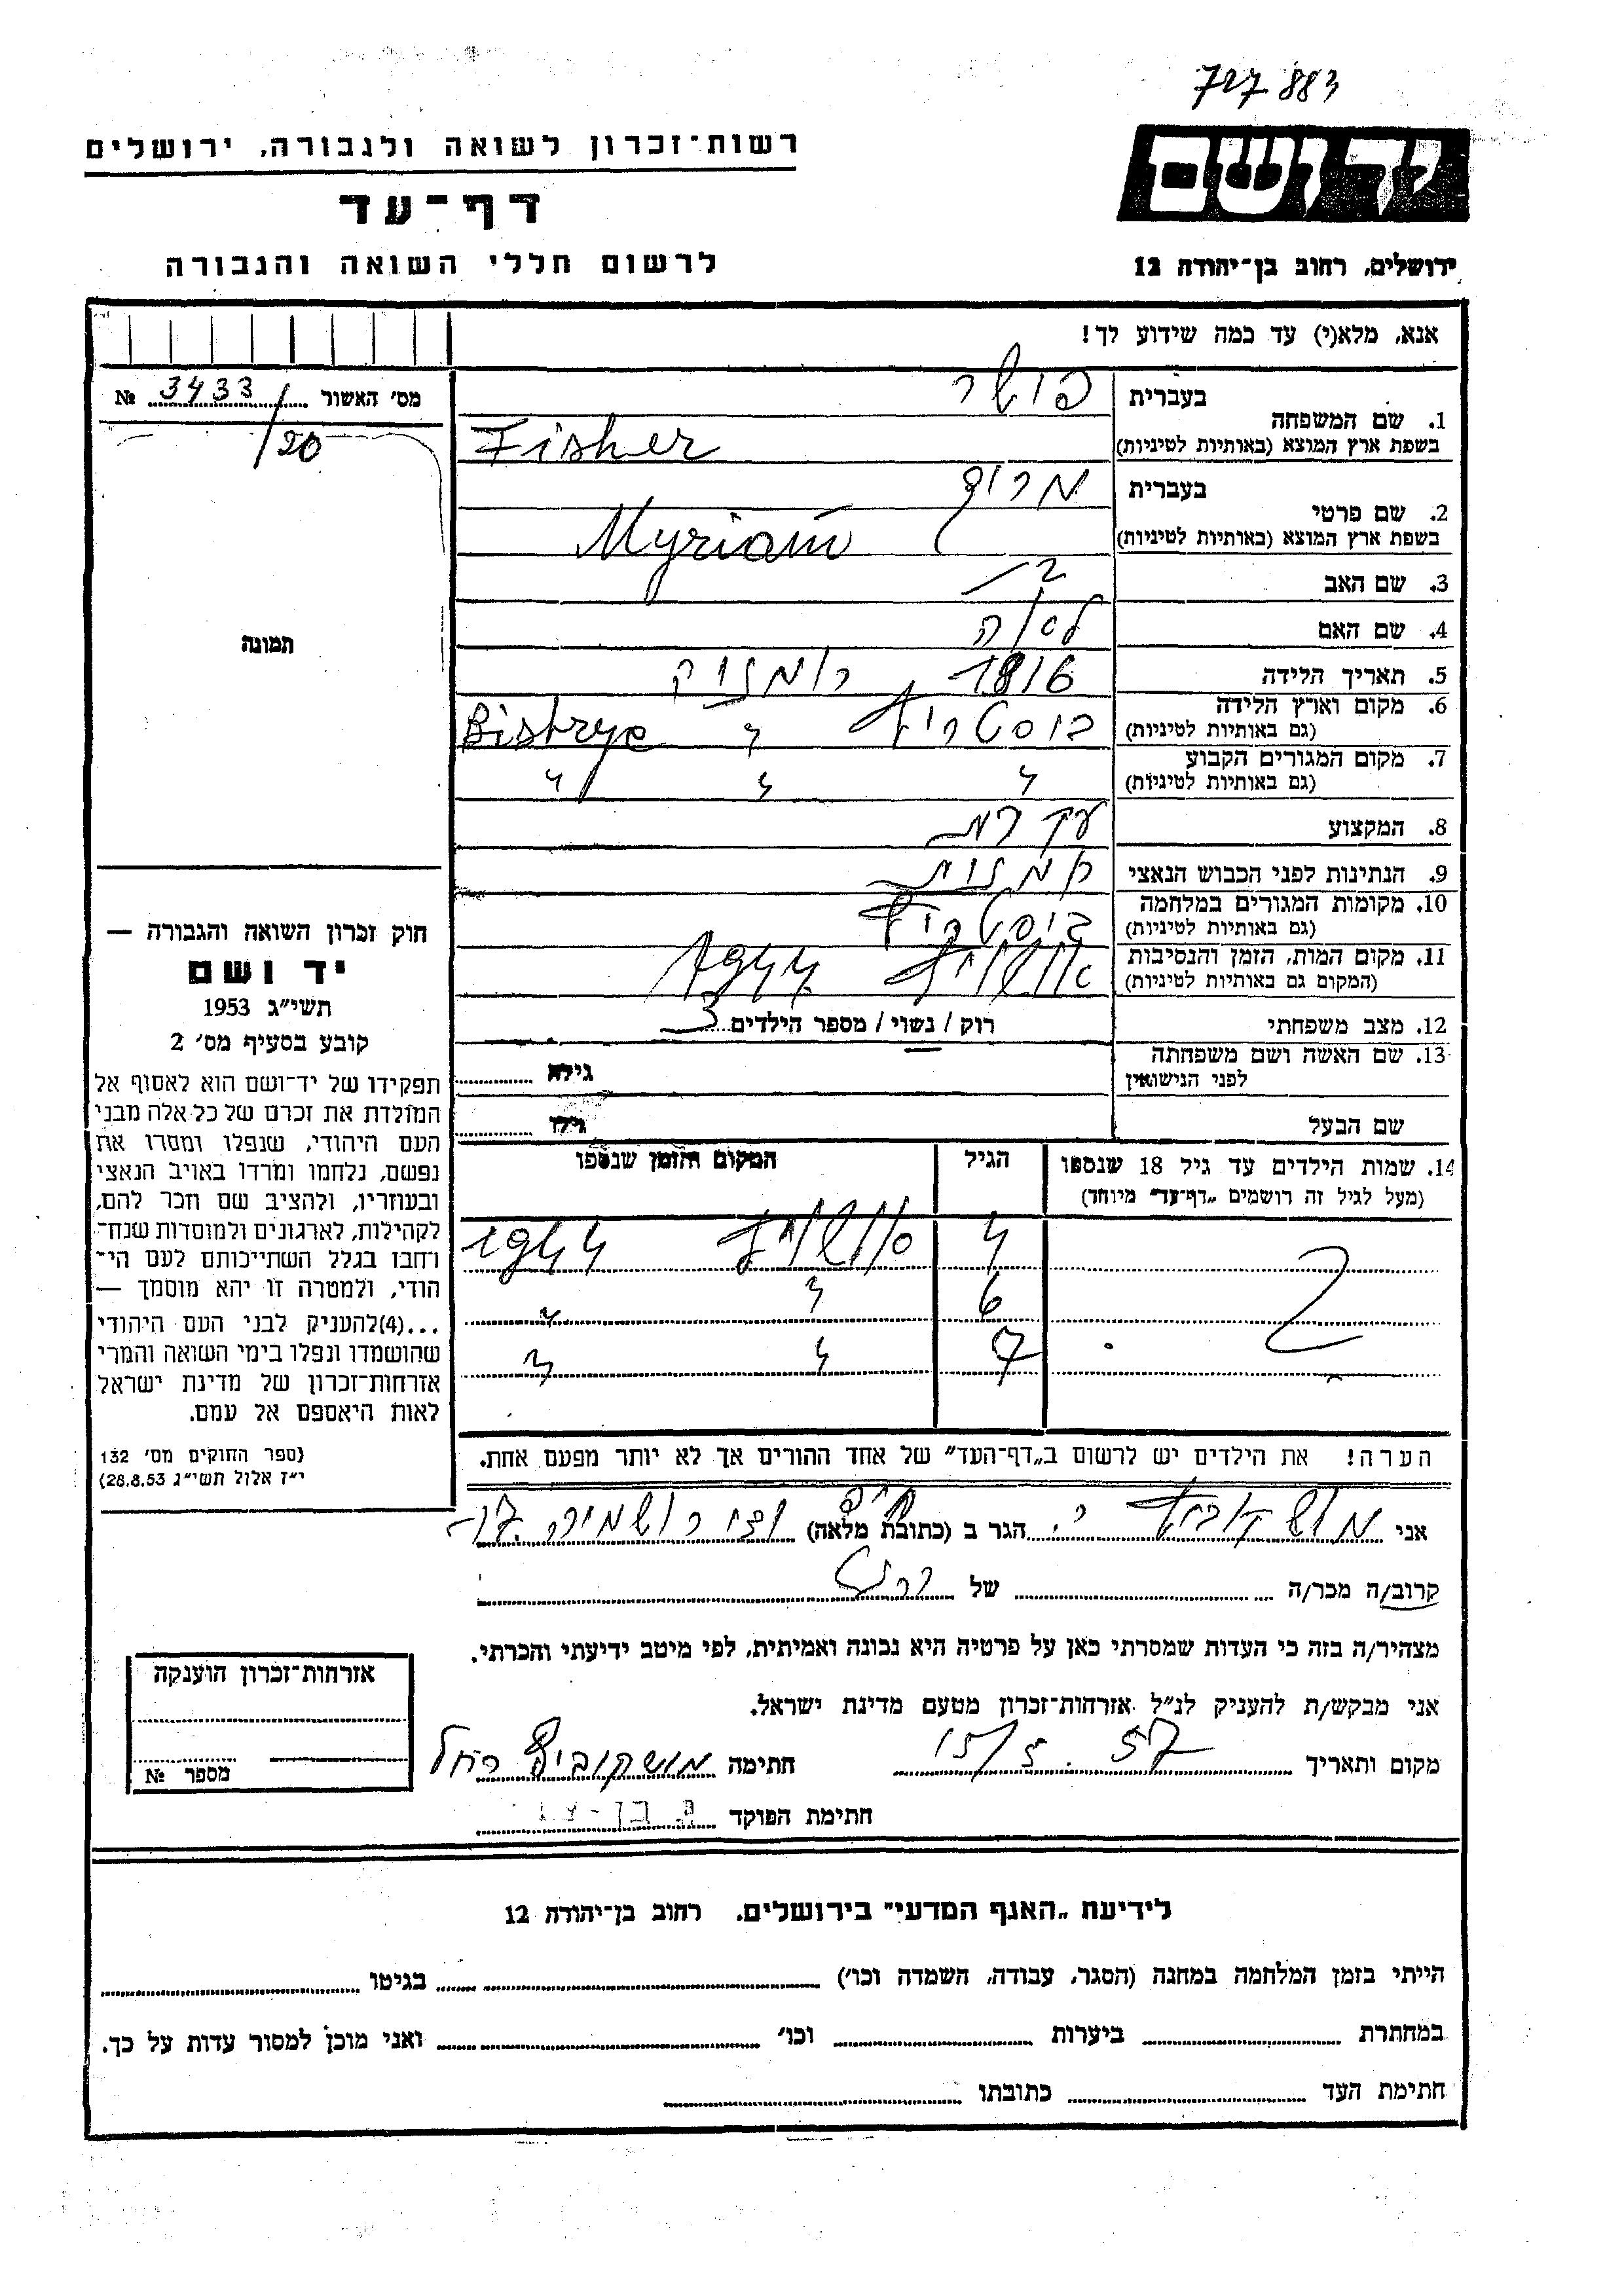 727883
רשות־זכרון לשואה ולגבורה, ירושלים
דף־עד
לרשום חללי השואה והגבורה
יד ושם
ירושלים, רחוב בן־יהודה 12
אנא, מלא(י) עד כמה שידוע לך!
מס' האשור № 3433/20
תמונה
1. שם המשפחה בעברית פישר
בשפת ארץ המוצא (באותיות לטיניות) Fisher
2. שם פרטי בעברית מרים
בשפת ארץ המוצא (באותיות לטיניות) Myriam
3. שם האב
4. שם האם
5. תאריך הלידה
6. מקום וארץ הלידה (גם באותיות לטיניות) ביסטריץ " Bistryc
7. מקום המגורים הקבוע (גם באותיות לטיניות) " " "
8. המקצוע עקרת
9. הנתינות לפני הכבוש הנאצי
10. מקומות המגורים במלחמה (גם באותיות לטיניות) ביסטריץ
11. מקום המות, הזמן והנסיבות (המקום גם באותיות לטיניות) אושויץ 1944
12. מצב משפחתי רוק / נשוי / מספר הילדים 3
13. שם האשה ושם משפחתה לפני הנישואין גילה
שם הבעל גילו
14. שמות הילדים עד גיל 18 שנספו (מעל לגיל זה רושמים „דף־עד" מיוחד) הגיל המקום והזמן שנספו
4 אושויץ 1944
6 " "
7 " "
הערה! את הילדים יש לרשום ב„דף־העד" של אחד ההורים אך לא יותר מפעם אחת.
חוק זכרון השואה והגבורה —
יד ושם
תשי"ג 1953
קובע בסעיף מס' 2
תפקידו של יד־ושם הוא לאסוף אל
המולדת את זכרם של כל אלה מבני
העם היהודי, שנפלו ומסרו את
נפשם, נלחמו ומרדו באויב הנאצי
ובעוזריו, ולהציב שם וזכר להם,
לקהילות, לארגונים ולמוסדות שנח־
רחבו בגלל השתייכותם לעם הי־
הודי, ולמטרה זו יהא מוסמך —
...(4)להעניק לבני העם היהודי
שהושמדו ונפלו בימי השואה והמרי
אזרחות־זכרון של מדינת ישראל
לאות היאספם אל עמם.
(ספר החוקים מס' 132
י"ז אלול תשי"ג 28.8.53)
אני מושקוביץ ר. הגר ב (כתובת מלאה) חיפה
קרוב/ה מכר/ה של
מצהיר/ה בזה כי העדות שמסרתי כאן על פרטיה היא נכונה ואמיתית, לפי מיטב ידיעתי והכרתי.
אני מבקש/ת להעניק לנ"ל אזרחות־זכרון מטעם מדינת ישראל.
מקום ותאריך 15/5.57 חתימה מושקוביץ רחל
חתימת הפוקד
אזרחות־זכרון הוענקה
מספר №
לידיעת „האגף המדעי" בירושלים, רחוב בן־יהודה 12
הייתי בזמן המלחמה במחנה (הסגר, עבודה, השמדה וכו') בגיטו
במחתרת ביערות וכו' ואני מוכן למסור עדות על כך.
חתימת העד כתובתו